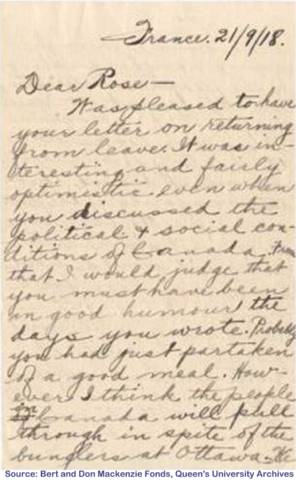 France. 21/9/18.
Dear Rose—
Was pleased to have
your letter on returning
from leave. It was in-
teresting and fairly
optimistic even when
you discussed the
political & social con-
ditions of Canada. From
that I would judge that
you must have been
in good humour the
days you wrote. Probably
you had just partaken
of a good meal. How-
ever I think the people
Canada will pull
through in spite of the
bunglers at Ottawa.
Source: Bert and Don Mackenzie Fonds, Queen's University Archives